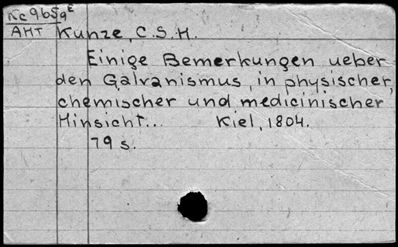 Kc965gᴱ
AHT Kunze, C.S.H.
Einige Bemerkungen ueber
den Galvanismus, in physischer,
chemischer und medicinischer
Hinsicht... Kiel, 1804.
79 s.